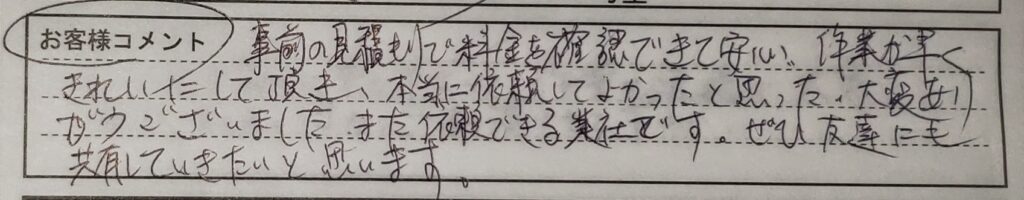 お客様コメント 事前の見積もりで料金を確認できて安心、作業が早く
きれいにして頂き、本当に依頼してよかったと思った、大変あり
がとうございました また依頼できる業社です。ぜひ友達にも
共有していきたいと思います。